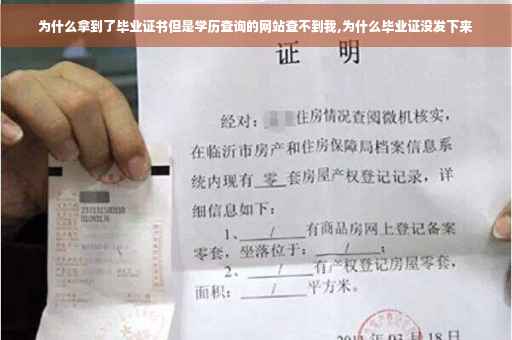 为什么拿到了毕业证书但是学历查询的网站查不到我,为什么毕业证没发下来
证 明
经对: 住房情况查阅微机核实,
在临沂市房产和住房保障局档案信息系
统内现有 零 套房屋产权登记记录,详
细信息如下:
1、 / 有商品房网上登记备案
零套,坐落位于: / ;
2、 / 有产权登记房屋零套,
面积: / 平方米。
03 月 18 日